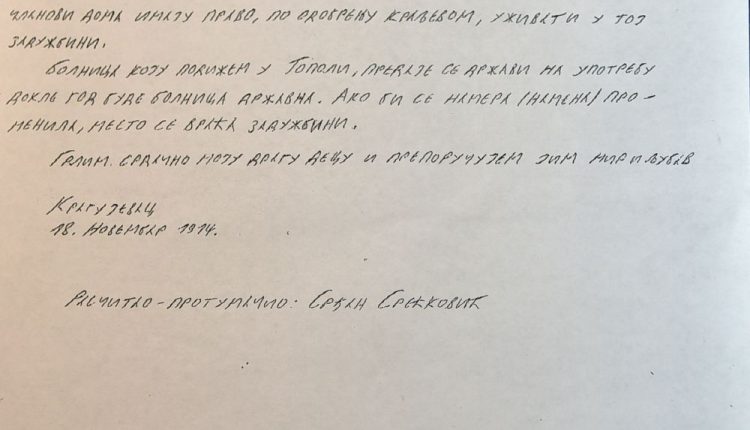 чланови дома имају право, по одобрењу краљевом, уживати у тој
задужбини.
Болница коју подижем у Тополи, предаје се држави на употребу
докле год буде болница државна. Ако би се намера /намена/ про-
менила, место се враћа задужбини.
Грлим срдачно моју драгу децу и препоручујем њим мир и љубав
Крагујевац
18. новембар 1914.
Расчитао-протумачио: Срђан Срећковић